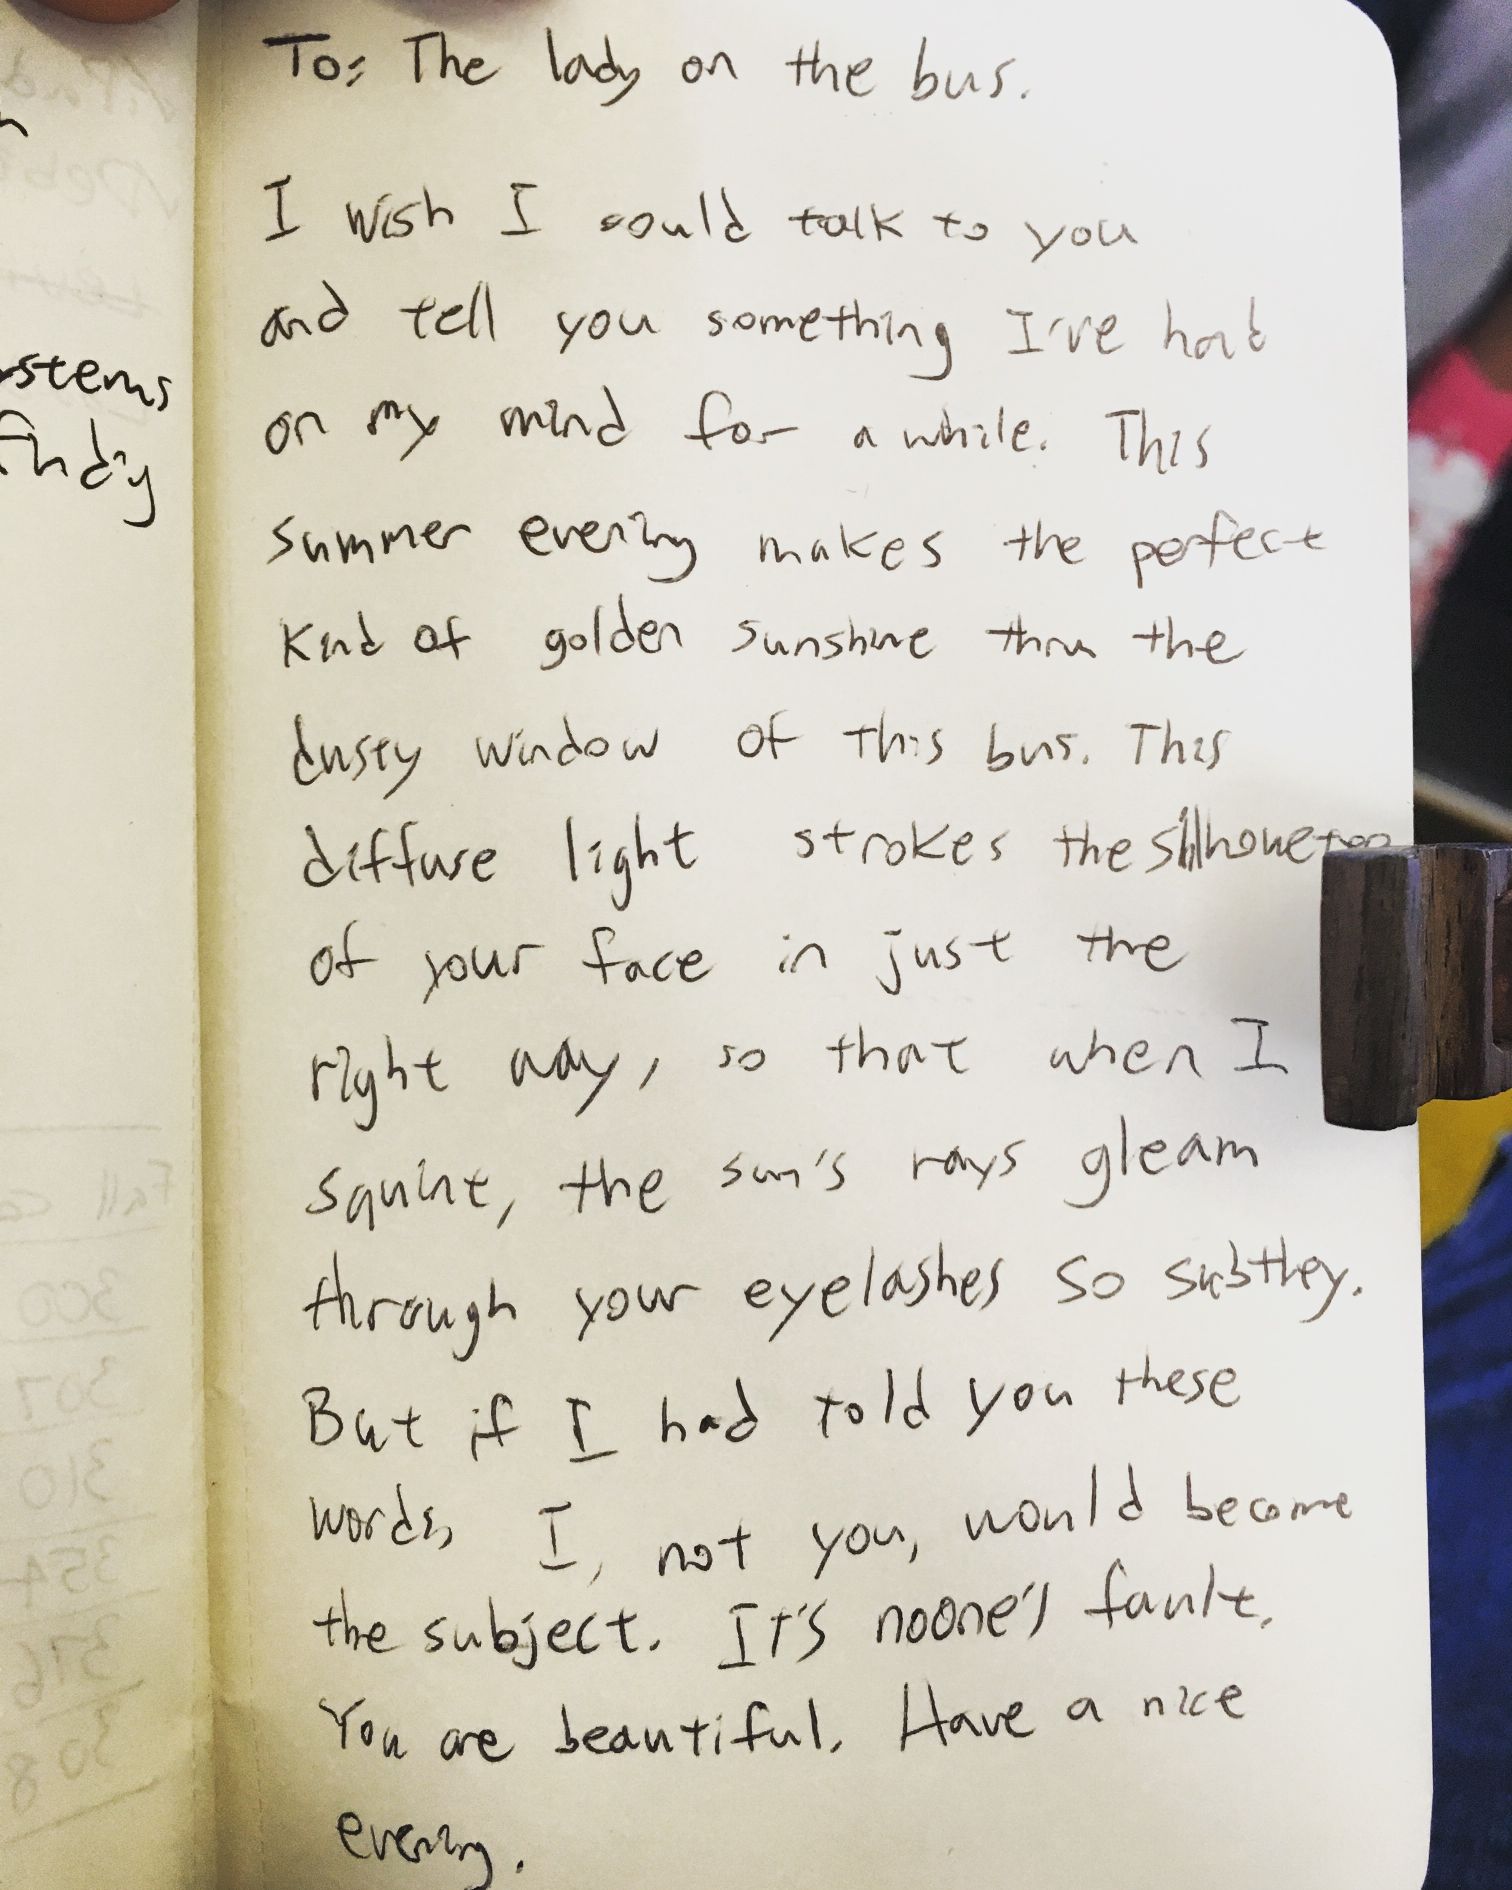 To: The lady on the bus.
I wish I could talk to you
and tell you something I've had
on my mind for a while. This
summer evening makes the perfect
kind of golden sunshine thru the
dusty window of this bus. This
diffuse light strokes the
of your face in just the
right way, so that when I
squint, the sun's rays gleam
through your eyelashes so
But if I had told you these
words, I, not you, would become
the subject. It's noone's fault.
You are beautiful. Have a nice
evening.
stems
Fall
300
307
310
354
376
308